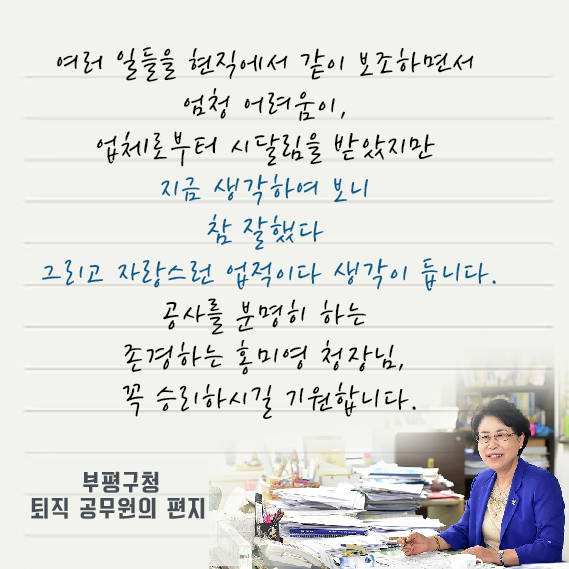 여러 일들을 현직에서 같이 보조하면서
엄청 어려움이,
업체로부터 시달림을 받았지만
지금 생각하여 보니
참 잘했다
그리고 자랑스런 업적이다 생각이 듭니다.
공사를 분명히 하는
존경하는 홍미영 청장님,
꼭 승리하시길 기원합니다.
부평구청
퇴직 공무원의 편지